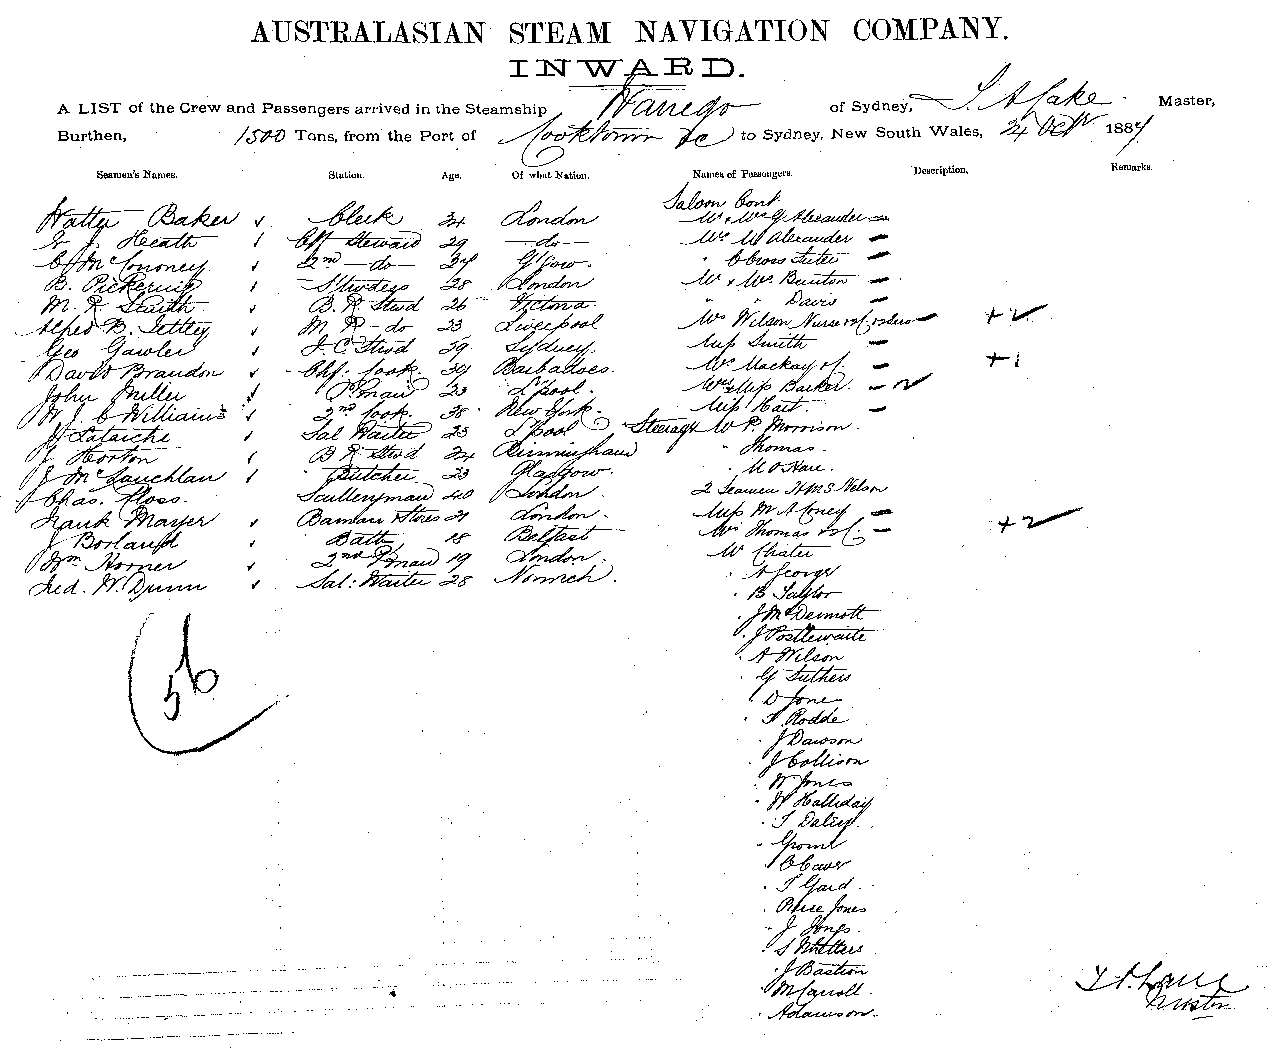 AUSTRALASIAN STEAM NAVIGATION COMPANY.
INWARD.
A LIST of the Crew and Passengers arrived in the Steamship Warrego of Sydney, Master,
Burthen, 1500 Tons, from the Port of Cooktown &c to Sydney, New South Wales, 24 Octr 1884
Seamen's Names. Station. Age. Of what Nation. Names of Passengers. Description, Remarks.
Saloon Cont
Walter Baker Clerk 34 London Mr & Mrs G Alexander
Heath Ch Steward 29 do Mrs W Alexander
C McCononey 2nd do 37 G'gow. C Cross
B. Pickering Stwdess 28 London Mr & Mrs Bunton
M. R. Smith B. R Stwd 26 Victoria " " Davis
Alfred B. Tettley M R do 23 Liverpool Mrs Wilson Nurse +2
Geo Gawler F. C. Stwd 39 Sydney. Miss Smith
David Brandon Chf. Cook. 39 Barbadoes. Mrs Mackay +1
John Miller P'man 23 L'pool Mrs & Miss Barker
W. J. C Williams 2nd Cook. 38 New York. Miss Hart.
Lataiche Sal Waiter 23 L'pool Steerage W P. Morrison
J Horton B R Stwd 24 Birmingham " Thomas
J McLauchlan Butcher 23 Glasgow. " M O'Hare
Chas. Floss Sculleryman 40 London 2 Seamen H M S Nelson
Frank Mayer Barman Stores 21 London. Miss M A Coney
J Borland Bath 18 Belfast Mrs Thomas +2
Wm Horner 2nd P'man 19 London. Mr Chater
Fred. W. Dunn Sal: Waiter 28 Norwich. " A George
" B Taylor
56
" J McDermott
" J Postlewaite
" A Wilson
" G Suthers
" D Jones
" F Rodde
" J Dawson
" J Collison
" W Jones
" W Halliday
" T Daley
"
" C Caver
" T Gard
" Rhise Jones
" J Jones
" S Whetters
" J Bastion
" M Carroll
" Adamson.
Master